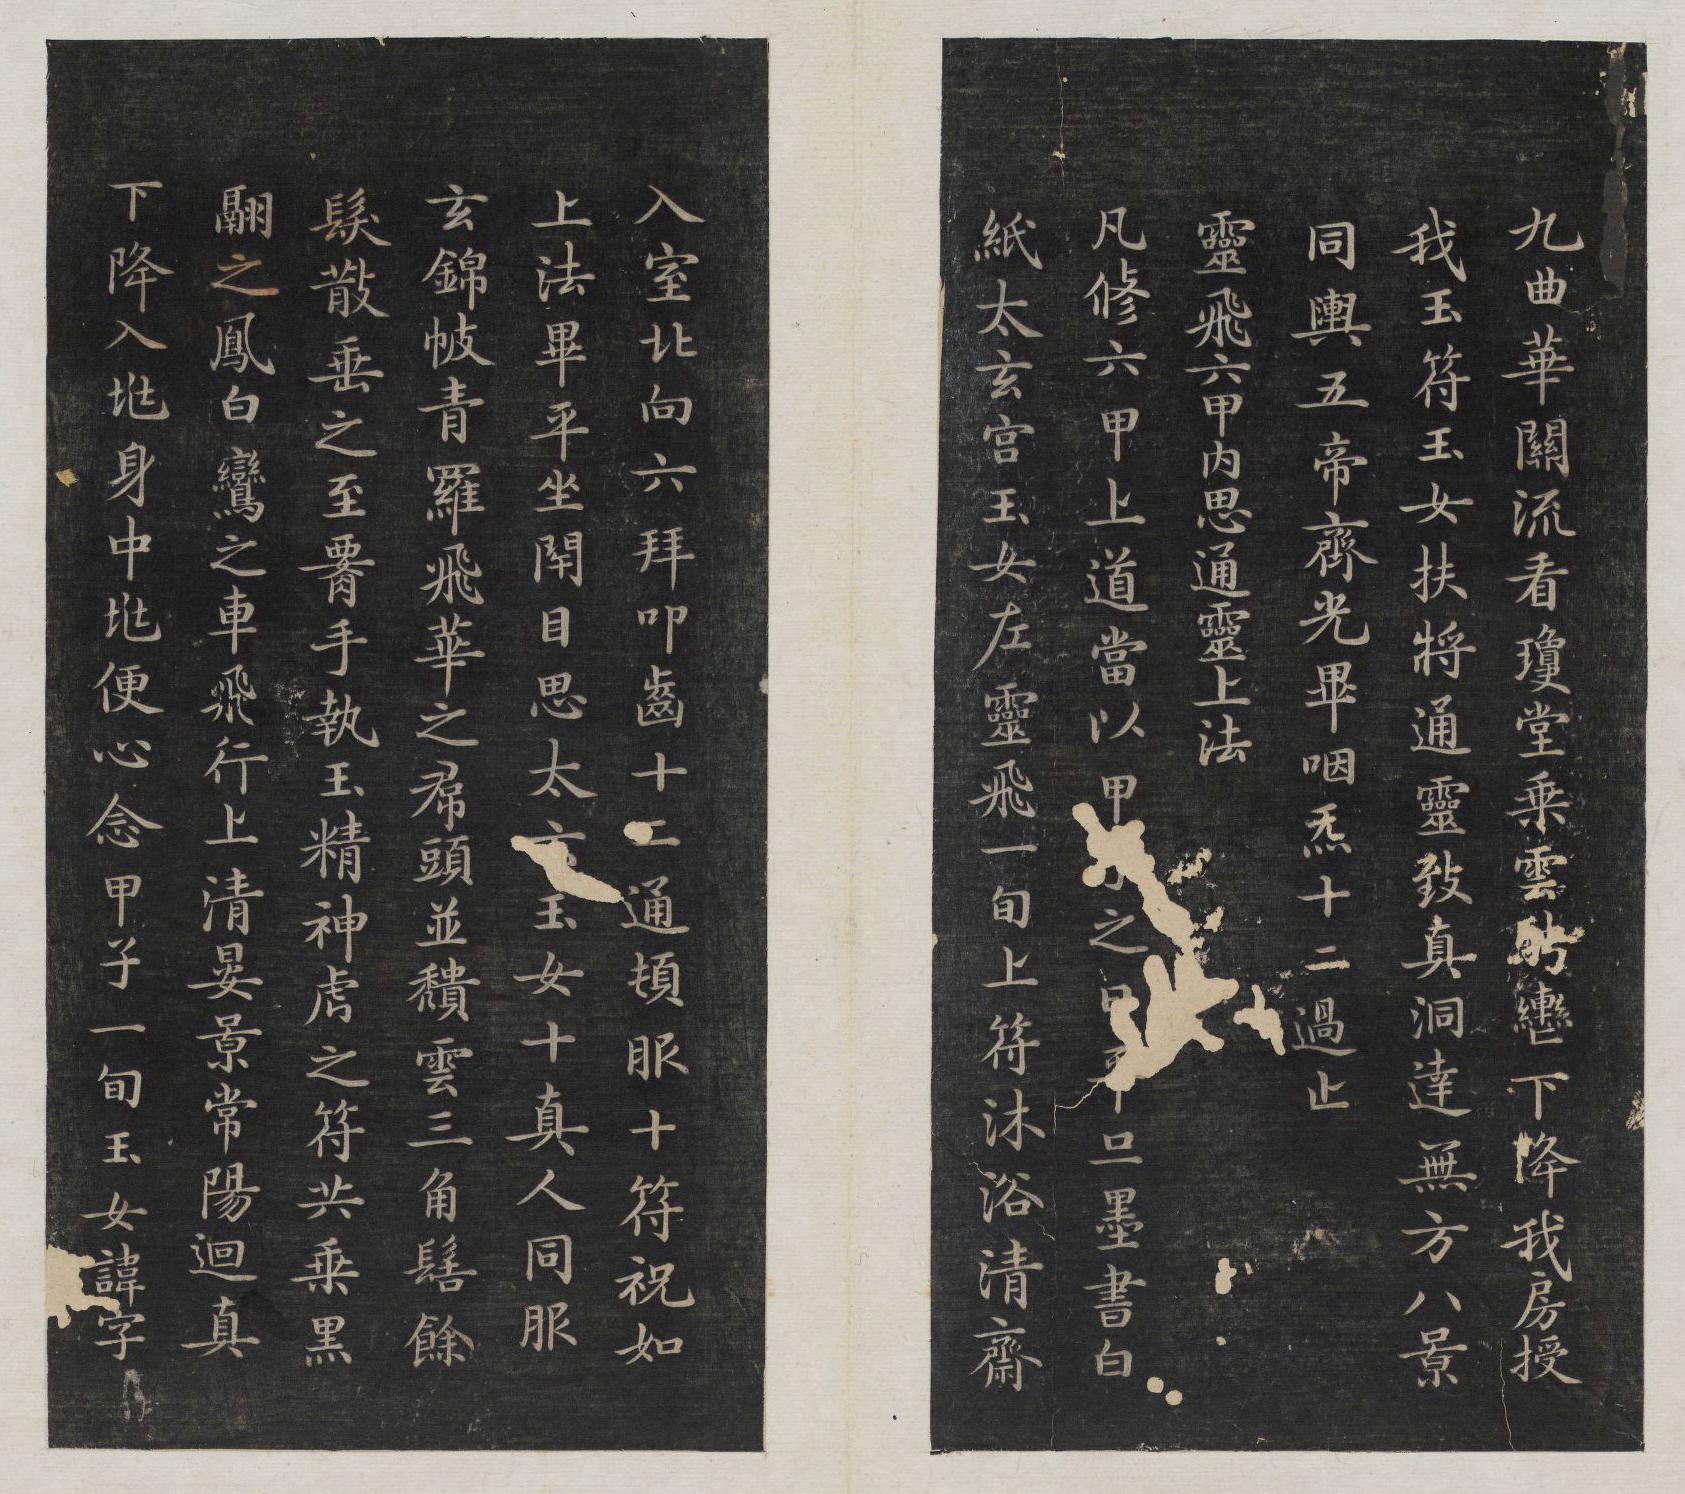 九曲華關流看瓊堂乘雲騁轡下降我房授
我玉符玉女扶將通靈致真洞達無方八景
同輿五帝齊光畢咽炁十二過止
靈飛六甲內思通靈上法
凡脩六甲上道當以甲子之日平旦墨書白
紙太玄宮玉女左靈飛一旬上符沐浴清齋
入室北向六拜叩齒十二通頓服十符祝如
上法畢平坐閉目思太玄玉女十真人同服
玄錦帔青羅飛華之帬頭並穨雲三角髻餘
髮散垂之至腰手執玉精神虎之符共乘黑
翮之鳳白鸞之車飛行上清晏景常陽迴真
下降入兆身中兆便心念甲子一旬玉女諱字